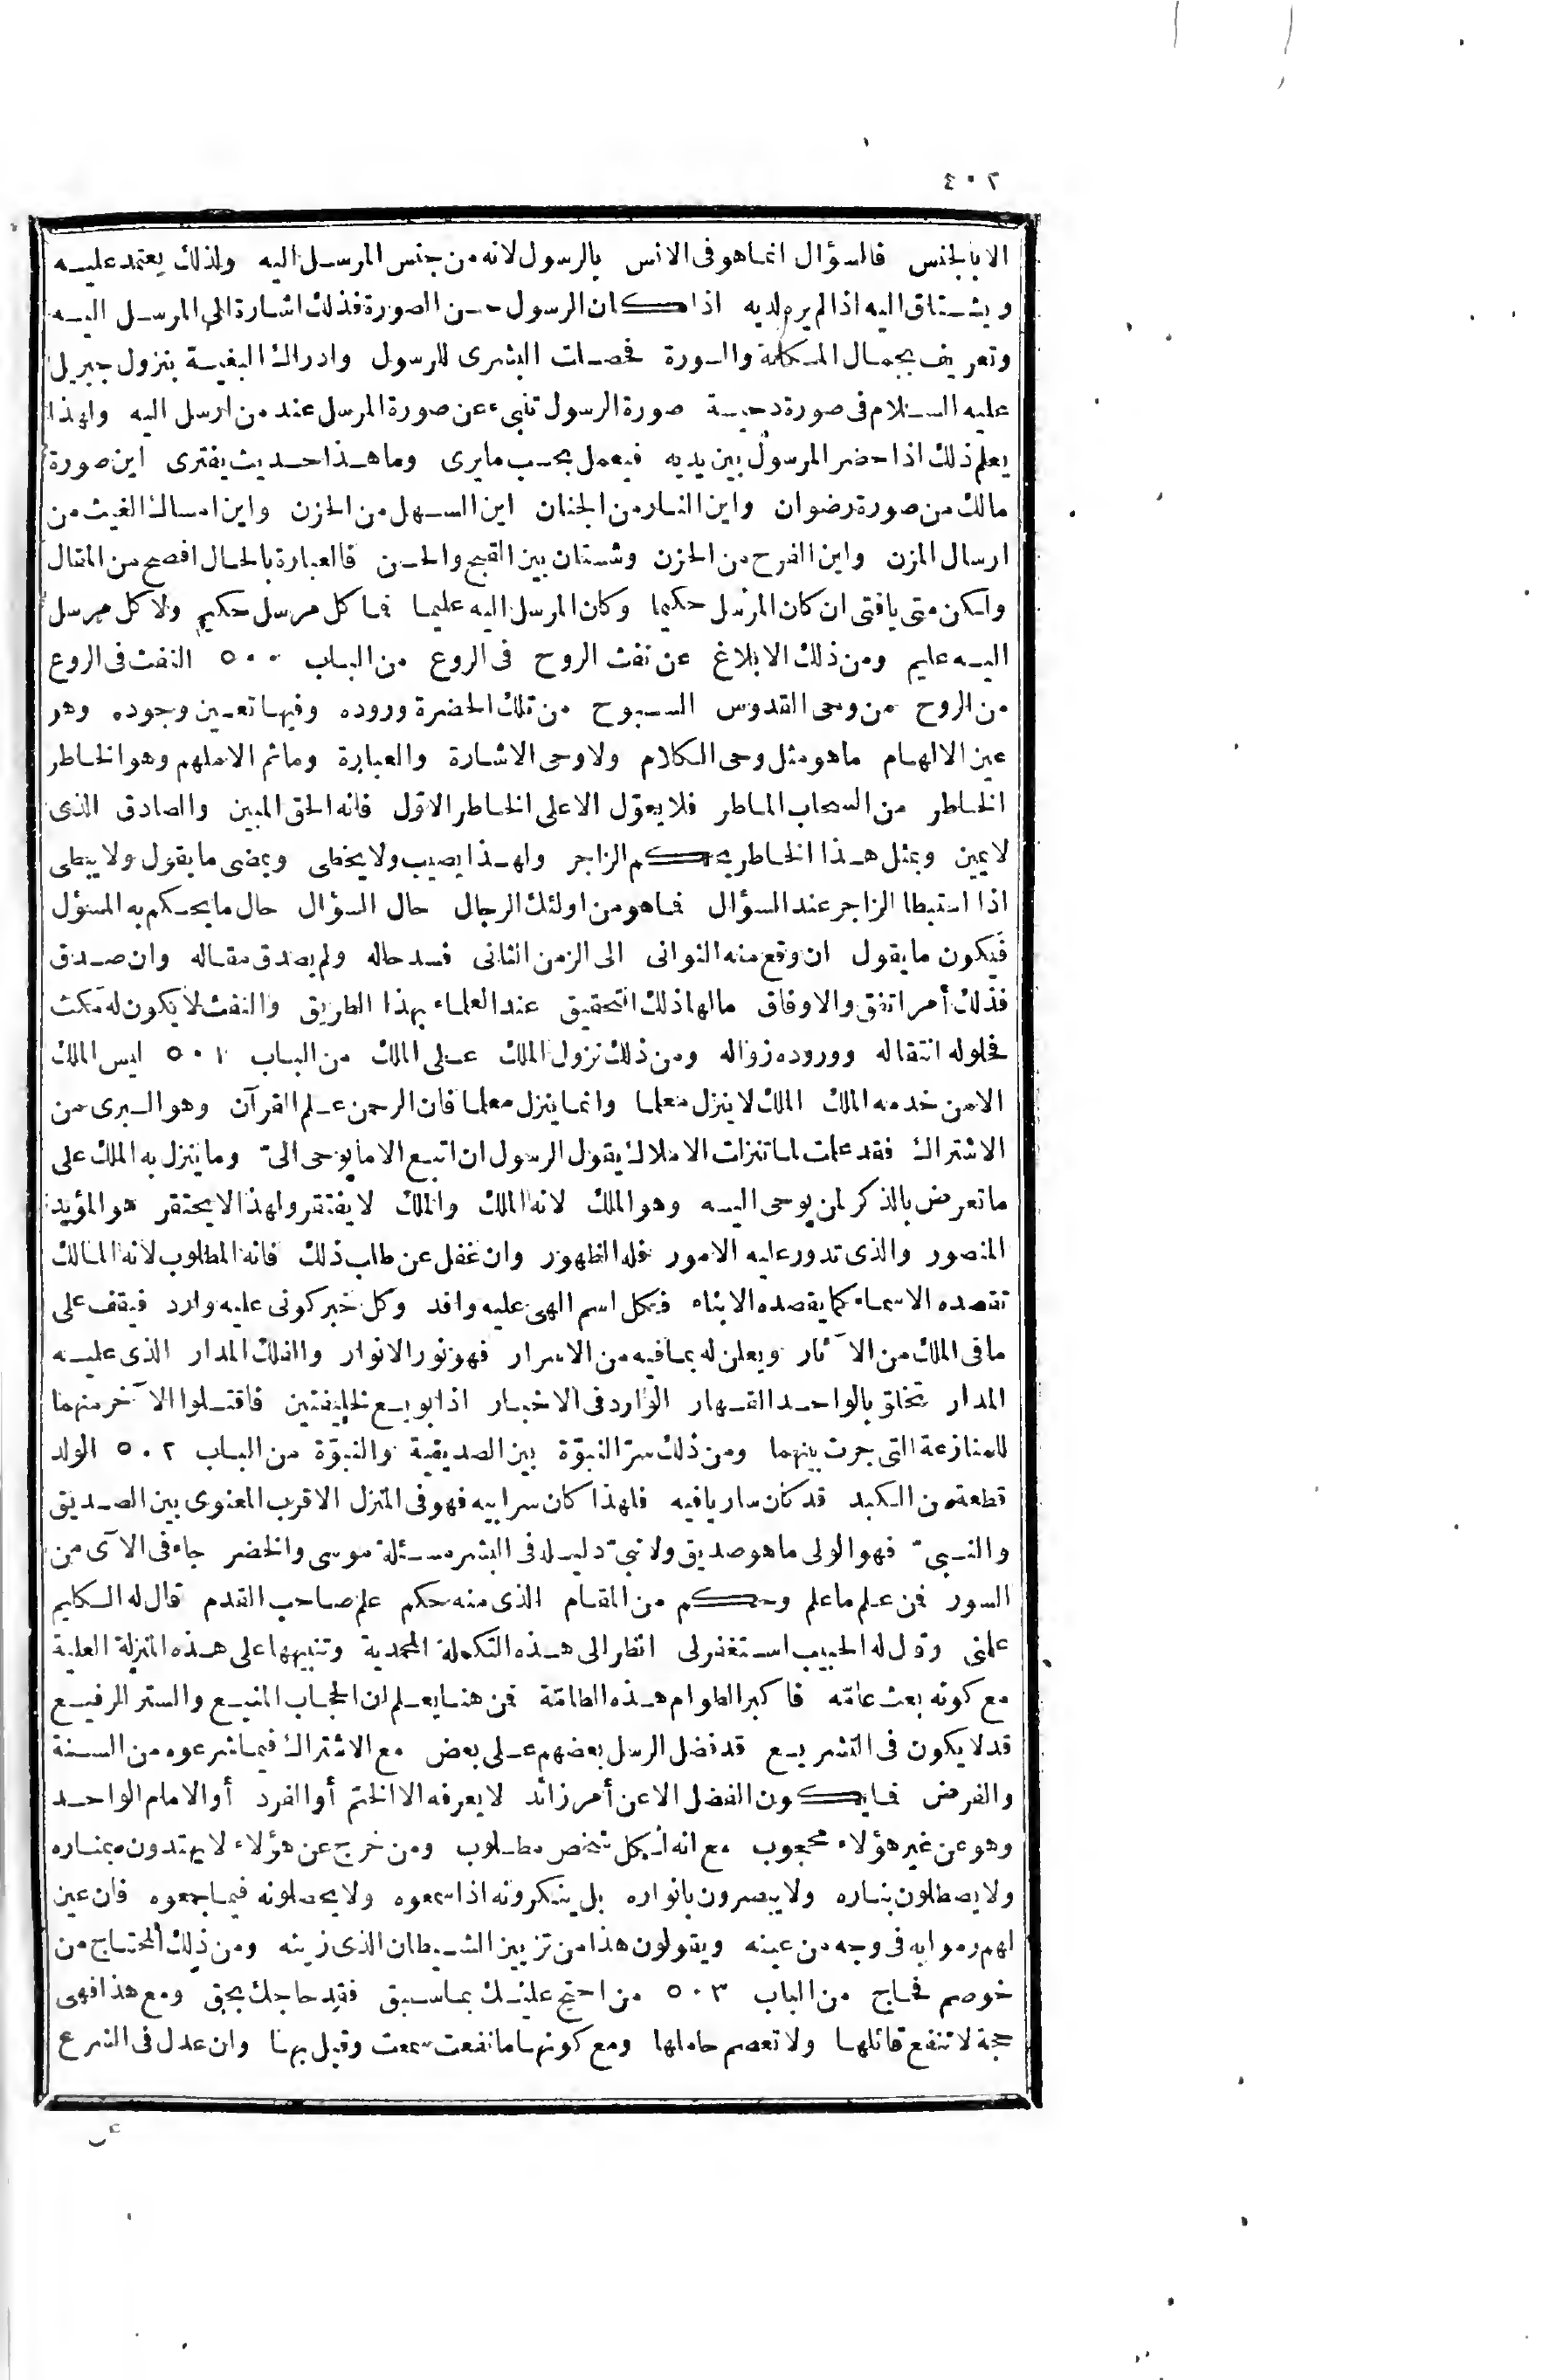 ٤٠٢
الا بالجنس فالسؤال انما هو فى الانس بالرسول لانه من جنس المرسل اليه ولذلك يعتمد عليه
ويشتاق اليه اذا لم يره لديه اذا كان الرسول حسن الصورة فذلك اشارة الى المرسل اليه
وتعريف بجمال المكانة والسورة فحصلت البشرى للرسول وادراك البغية بنزول جبريل
عليه السلام فى صورة دحية صورة الرسول تنبىء عن صورة المرسل عند من ارسل اليه ولهذا
يعلم ذلك اذا حضر المرسول بين يديه فيعمل بحسب ما يرى وما هذا حديث يفترى اين صورة
مالك من صورة رضوان واين النار من الجنان اين السهل من الحزن واين امساك الغيث من
ارسال المزن واين الفرح من الحزن وشتان بين القبح والحسن فالعبارة بالحال افصح من المقال
ولكن متى يا فتى ان كان المرسل حكيما وكان المرسل اليه عليما فما كل مرسل حكيم ولا كل مرسل
اليه عليم ومن ذلك الابلاغ عن نفث الروح فى الروع من الباب ٥٠٠ النفث فى الروع
من الروح من وحى القدوس السبوح من تلك الحضرة وروده وفيها تعين وجوده وهو
عين الالهام ما هو مثل وحى الكلام ولا وحى الاشارة والعبارة وما ثم الا ملهم وهو الخاطر
الخاطر من السحاب الماطر فلا يعوّل الا على الخاطر الاوّل فانه الحق المبين والصادق الذى
لا يمين وبمثل هذا الخاطر يحكم الزاجر ولهذا يصيب ولا يخطى ويمضى ما يقول ولا يبطى
اذا استبطا الزاجر عند السؤال فما هو من اولئك الرجال حال السؤال حال ما يحكم به المسؤل
فيكون ما يقول ان وقع منه التوانى الى الزمن الثانى فسد حاله ولم يصدق مقاله وان صدق
فذلك أمر اتفق والاوفاق ما لها ذلك التحقيق عند العلماء بهذا الطريق والنفث لا يكون له مكث
فحلوله انتقاله ووروده زواله ومن ذلك نزول الملك على الملك من الباب ٥٠١ ليس الملك
الا من خدمه الملك الملك لا ينزل معلما وانما ينزل معلما فان الرحمن علم القرآن وهو البرى من
الاشتراك فقد علمت لما تنزلت الاملاك يقول الرسول ان اتبع الا ما يوحى الىّ وما ينزل به الملك على
ما تعرض بالذكر لمن يوحى اليه وهو الملك لانه الملك والملك لا يفتقر ولهذا لا يحتقر هو المؤيد
المنصور والذى تدور عليه الامور فله الظهور وان غفل عن طلب ذلك فانه المطلوب لانه المالك
تقصده الاسماء كما يقصده الابناء فكل اسم الهى عليه وافد وكل خبر كونى عليه وارد فيقف على
ما فى الملك من الآثار ويعلن له بما فيه من الاسرار فهو نور الانوار والفلك المدار الذى عليه
المدار تخلق بالواحد القهار الوارد فى الاخبار اذا بويع لخليفتين فاقتلوا الآخر منهما
للمنازعة التى جرت بينهما ومن ذلك سرّ النبوّة بين الصديقية والنبوّة من الباب ٥٠٢ الولد
قطعة من الكبد قد كان ساريا فيه فلهذا كان سر ابيه فهو فى المنزل الاقرب المعنوى بين الصديق
والنبىّ فهو الولى ما هو صديق ولا نبىّ دليله فى البشر مسئلة موسى والخضر جاء فى الآى من
السور فمن علم ما علم وحكم من المقام الذى منه حكم علم صاحب القدم قال له الكليم
علمنى وقول له الحبيب استغفر لى انظر الى هذه التكملة المحمدية وتنبيهها على هذه المنزلة العلية
مع كونه بعث عامّه فاكبر الطوام هذه الطامّة فمن هنا يعلم ان الحجاب المنيع والستر الرفيع
قد لا يكون فى التشريع قد فضل الرسل بعضهم على بعض مع الاشتراك فيما شرعوه من السنة
والفرض فما يكون الفضل الا عن أمر زائد لا يعرفه الا الختم أو الفرد أو الامام الواحد
وهو عن غير هؤلاء محجوب مع انه لكل شخص مطلوب ومن خرج عن هؤلاء لا يهتدون بمناره
ولا يصطلون بناره ولا يبصرون بانواره بل ينكرونه اذا سمعوه ولا يحصلونه فيما جمعوه فان عين
لهم رموا به فى وجه من عينه ويقولون هذا من تزيين الشيطان الذى زينه ومن ذلك المحتاج من
خوصم فحاج من الباب ٥٠٣ من احتج عليك بما سبق فقد حاجك بحق ومع هذا فهى
حجة لا تنفع قائلها ولا تعصم حاملها ومع كونها ما نفعت سمعت وقيل بها وان عدل فى الشرع